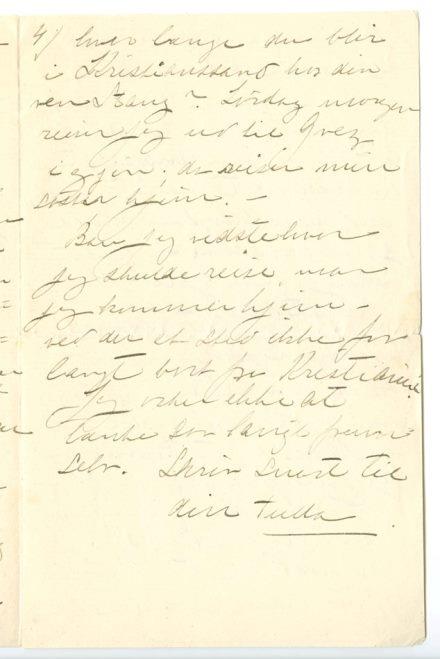 4) hvor længe du blir
i Kristianssand hos din
ven Bang? Lørdag morgen
reiser jeg ud til Grez
igjen; da reiser min
søster hjem. –
Bare jeg vidste hvor
jeg skulde reise, naar
jeg kommer hjem –
ved du et sted ikke for
langt bort fra Kristiania?
Jeg orker ikke at
tænke saa langt frem
selv. Skriv snart til
din Tulla